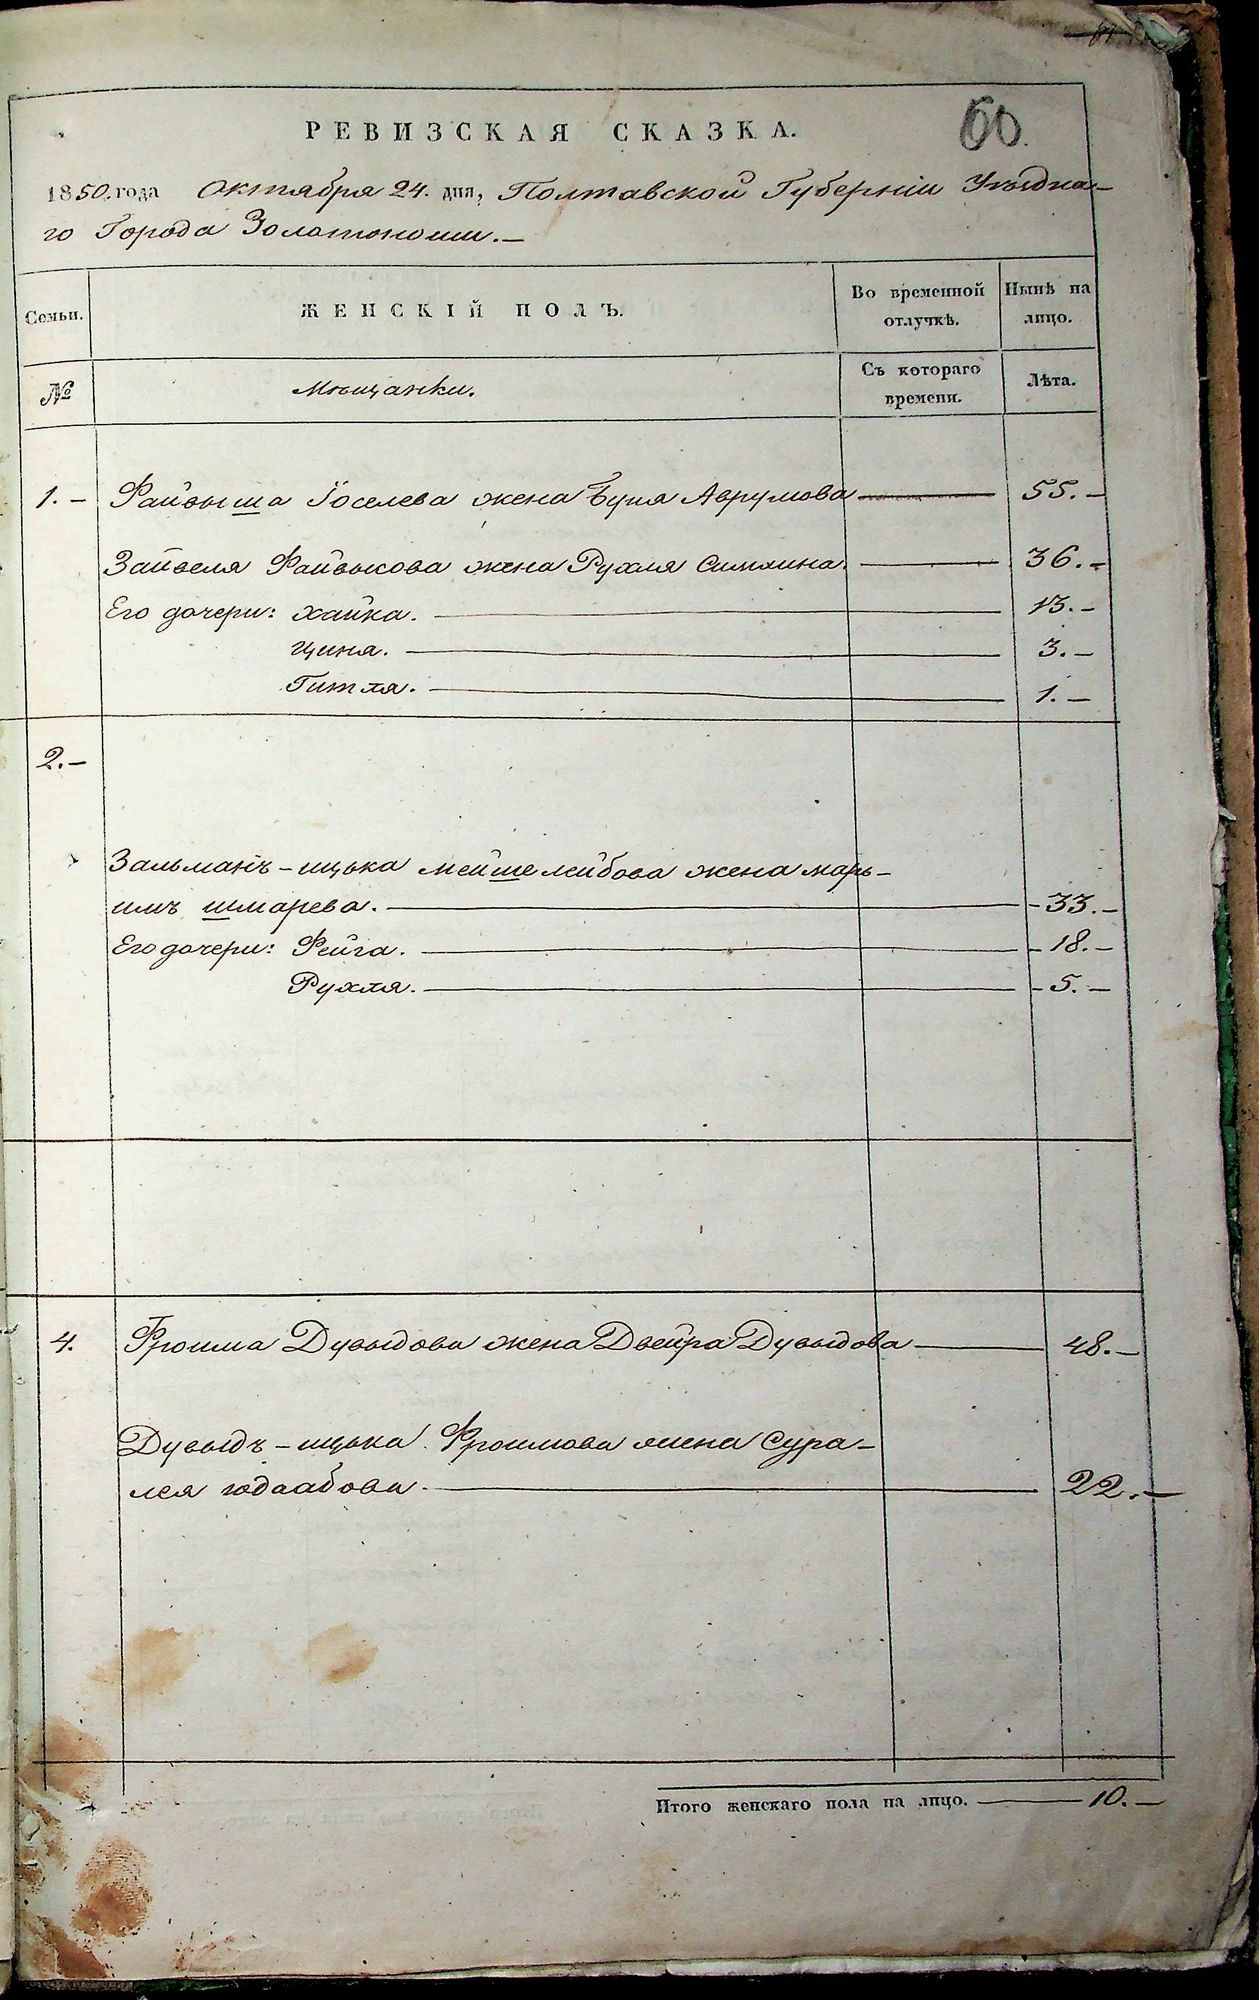 60.
РЕВИЗСКАЯ СКАЗКА.
1850. года Октября 24. дня, Полтавской Губерніи Уѣздна-
го Города Золотоноши.—
Семьи. ЖЕНСКІЙ ПОЛЪ. Во временной отлучкѣ. Нынѣ на лицо.
№ Мѣщанки. Съ котораго времени. Лѣта.
1.— Файвыша Іоселева жена Буня Аврумова — 55.—
Зайвеля Файвышова жена Рухля Симхина. — 36.—
Его дочери: Хайка. — 13.—
Циня. — 3.—
Гитля. — 1.—
2.—
Зальманъ-ицька Мейше лейбова жена марь-
имъ шмарева. — 33.—
Его дочери: Фейга. — 18.—
Рухля. — 5.—
4. Фроима Дувыдова жена Двейра Дувыдова — 48.—
Дувыдъ-ицька Фроимова жена Сура-
лея — 22.—
Итого женскаго пола на лицо. — 10.—